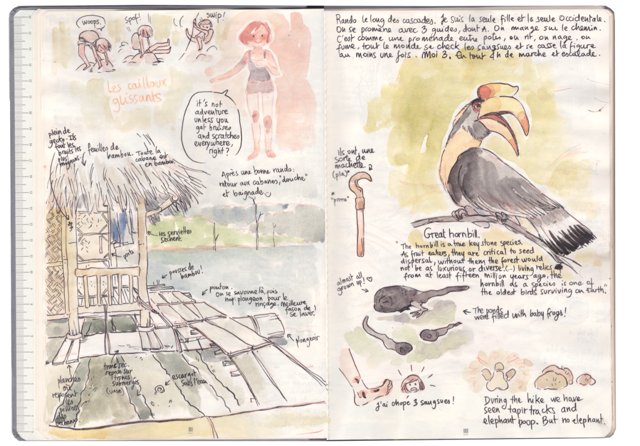 woops.
spof!
swip!
Les cailloux
glissants
it's not
adventure
unless you
get bruises
and scratches
everywhere,
right?
plein de
feuilles de
bambou. Toute la
cabane est
en bambou.
Après une bonne rando:
retour aux cabanes, "douche"
et baignade.
les serviettes
sèchent.
bambou.
ponton:
On se savonne là, puis
hop! plongeon pour le
rinçage. Meilleure
façon de
se laver.
plongeoir
planches
escargot
sous l'eau
Rando le long des cascades. Je suis la seule fille et la seule Occidentale.
On se promène avec 3 guides, dont A. On mange sur le chemin.
C'est comme une promenade entre potes, on rit, on nage, on
fume, tout le monde se check les sangsues et se casse la figure
au moins une fois. Moi 3. En tout 4h de marche et escalade.
ils ont une
sorte de
machette
Great hornbill.
"The hornbill is a true keystone species.
As fruit eaters, they are critical to seed
dispersal, without them the forest would
not be as luxurious or diverse. (..) Living relics
from at least fifteen million years ago, the
hornbill as a species is one of
the oldest birds surviving on Earth."
almost all
grown up!
The ponds
were filled with baby frogs!
J'ai chopé 3 sangsues!
During the hike we have
seen tapir tracks and
elephant poop. But no elephant.